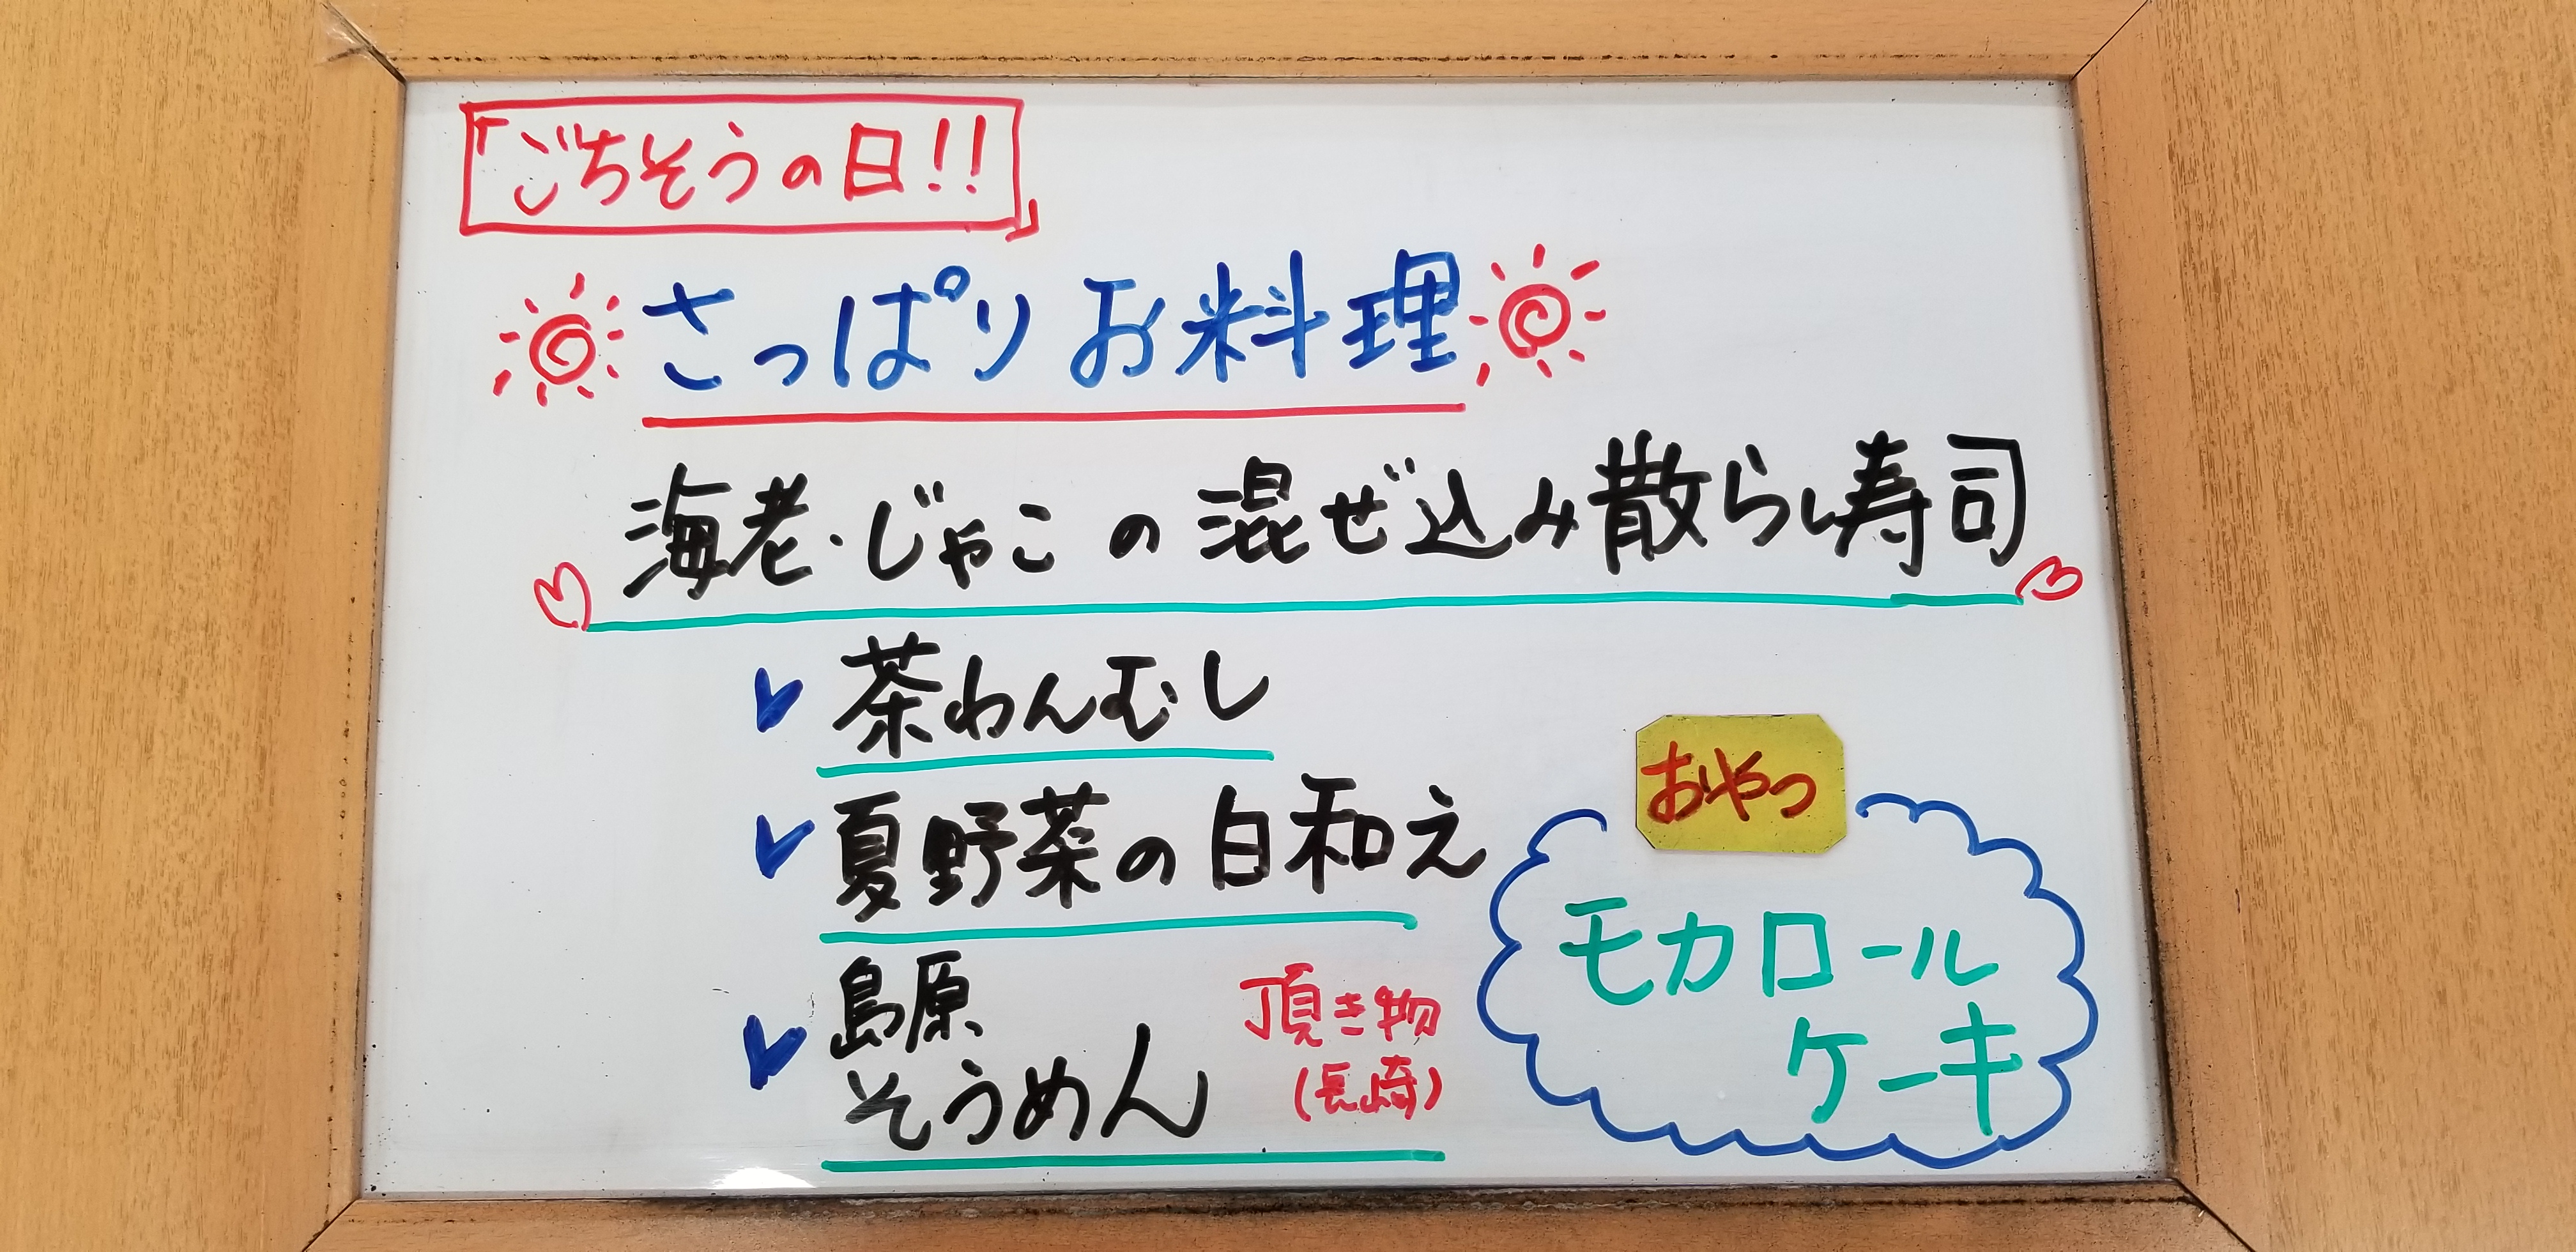 「ごちそうの日!!」
さっぱりお料理
海老・じゃこの混ぜ込み散らし寿司
茶わんむし
夏野菜の白和え
島原
そうめん
頂き物
(長崎)
おやつ
モカロール
ケーキ